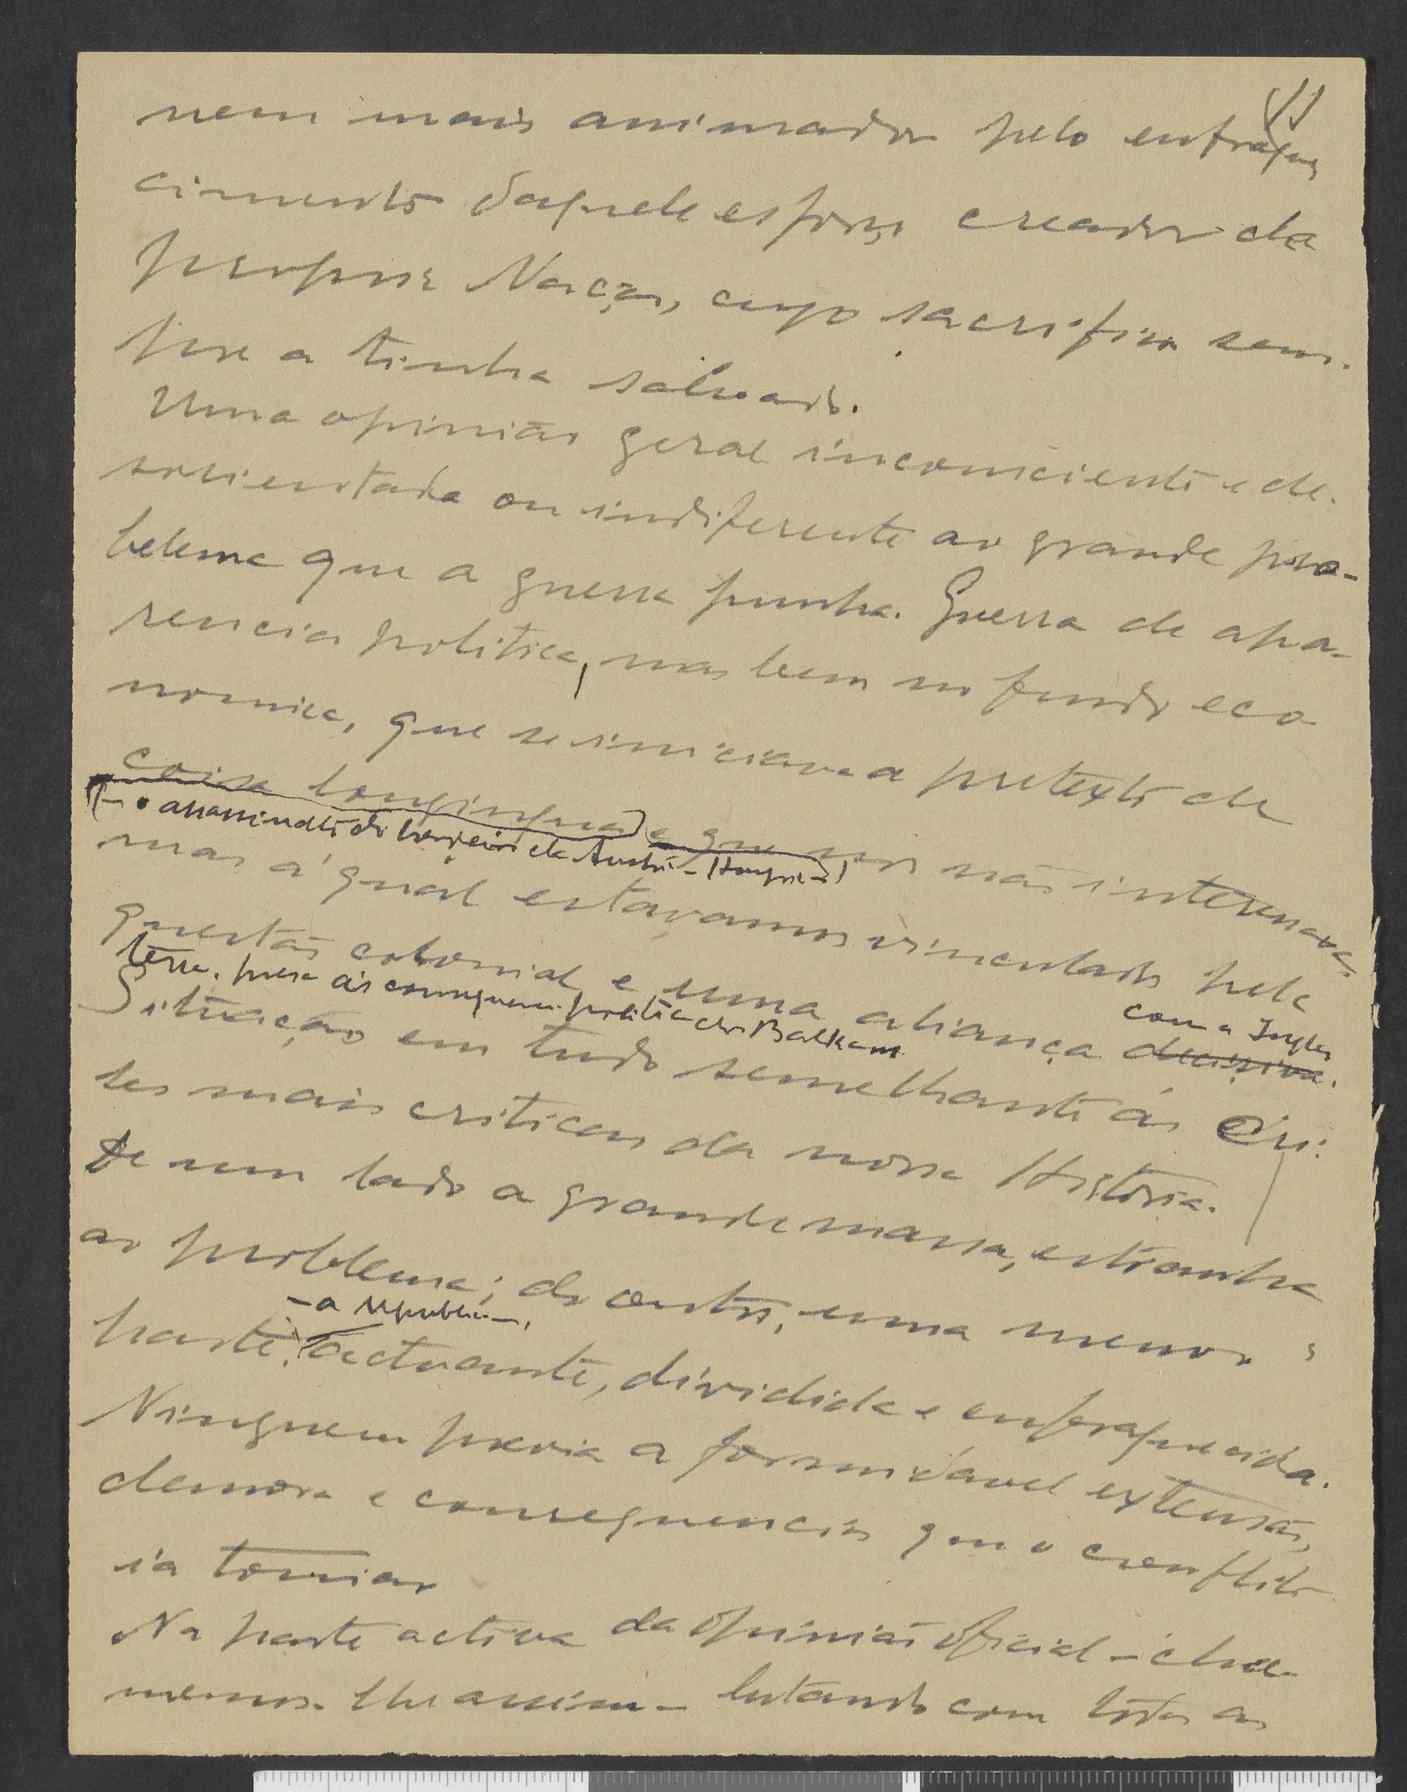 11
nem mais animador pelo enfraque
cimento daquele esforço creador da
propria Nação, cujo sacrifício sem-
pre a tinha salvado.
Uma opinião geral inconsciente e de-
sorientada ou indiferente ao grande pro-
blema que a guerra punha. Guerra de apa-
rencia politica, mas bem no fundo eco
nomica, que se iniciava a pretexto de
coisa longinqua e que nos não interessava
(- o assassinato do herdeiro da Austria-Hungria -)
mas á qual estavamos vinculados pela
questão colonial e uma aliança decisiva.
com a Ingla
terra. presa ás consequencias politica dos Balkans
Situação em tudo semelhante ás
tes mais criticas da nossa Historia.
De um lado a grande massa, estranha
ao problema; do outro, uma menor
- a Republica -,
parte, actuante, dividida e enfraquecida.
Ninguem previa a formidavel extensão,
demora e consequencias que o conflito
ia tomar
Na parte activa da opinião oficial - cha-
memos-lhe assim - lutando com todas as